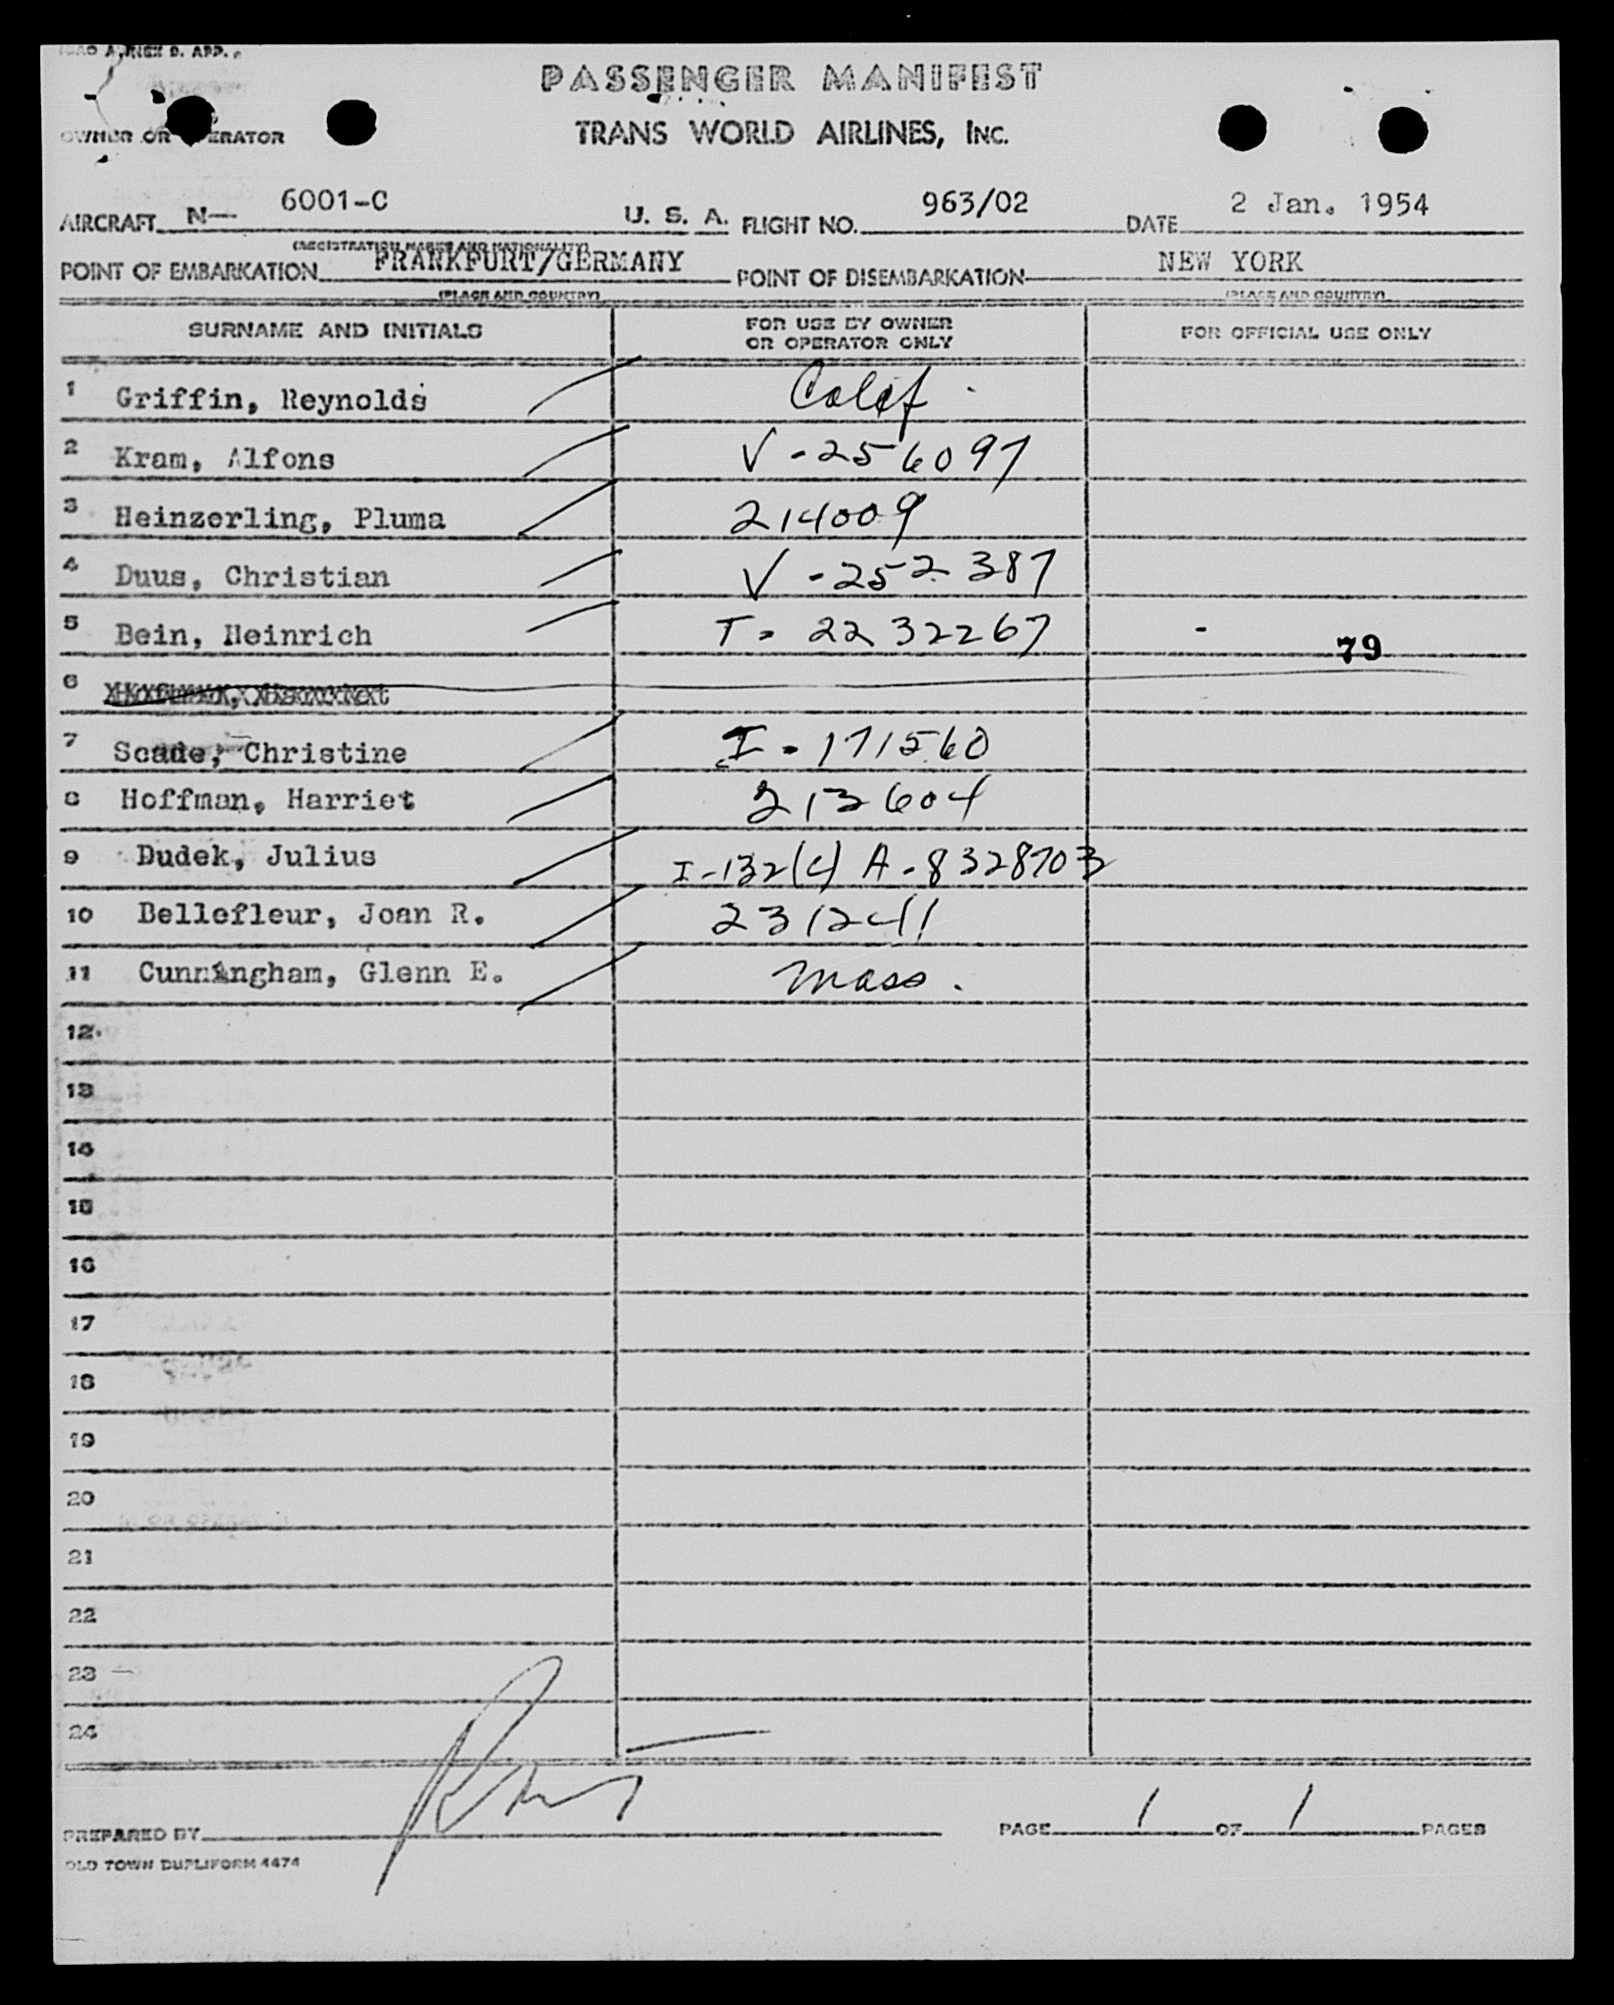 PASSENGER MANIFEST
OWNER OR OPERATOR TRANS WORLD AIRLINES, INC.
AIRCRAFT N— 6001-C U. S. A. FLIGHT NO. 963/02 DATE 2 Jan. 1954
(REGISTRATION MARKS AND NATIONALITY)
POINT OF EMBARKATION FRANKFURT/GERMANY POINT OF DISEMBARKATION NEW YORK
(PLACE AND COUNTRY) (PLACE AND COUNTRY)
SURNAME AND INITIALS FOR USE BY OWNER OR OPERATOR ONLY FOR OFFICIAL USE ONLY
1 Griffin, Reynolds Calif.
2 Kram, Alfons V-256097
3 Heinzerling, Pluma 214009
4 Duus, Christian V-252387
5 Bein, Heinrich T-2232267 79
6
7 Scade, Christine I-171560
8 Hoffman, Harriet 213604
9 Dudek, Julius I-132(c) A-8328703
10 Bellefleur, Joan R. 231241
11 Cunningham, Glenn E. Mass.
12
13
14
15
16
17
18
19
20
21
22
23
24
PREPARED BY PAGE 1 OF 1 PAGES
OLD TOWN DUPLIFORM 4474